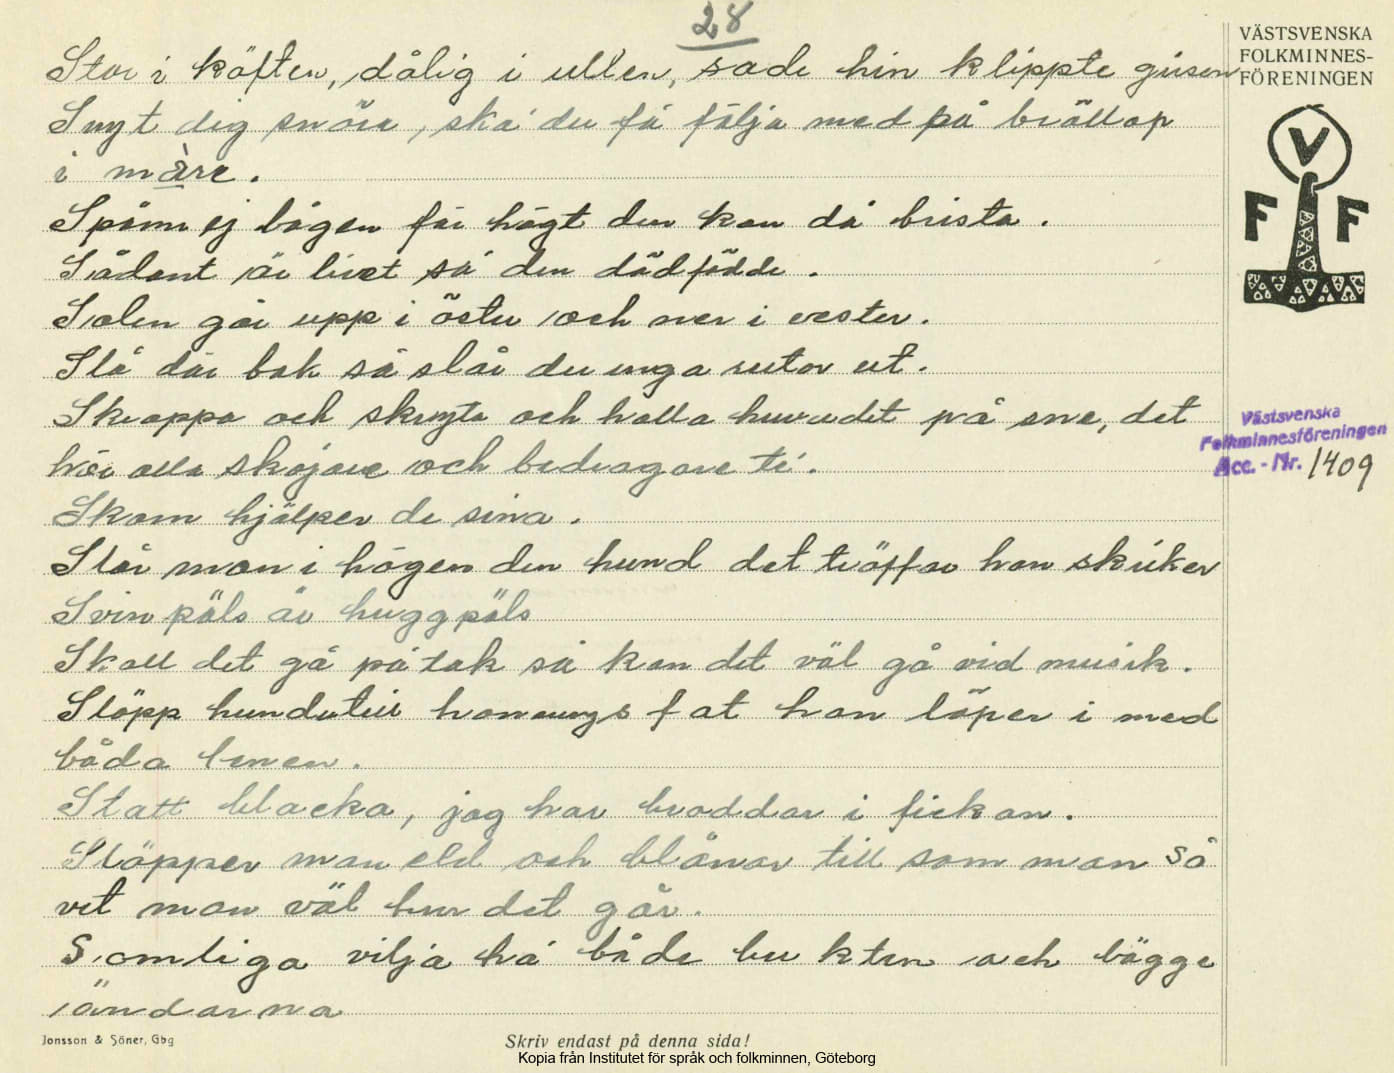 28
VÄSTSVENSKA
FOLKMINNES-
FÖRENINGEN
V
F F
Stor i käften, dålig i ullen, sade hin klippte grisen
Snyt dig snöra, ska' du få följa med på bröllop
i märe.
Spänn ej bågen för högt den kan då brista.
Sådant är livet sa' den dödfödde.
Solen går upp i öster och ner i vester.
Slå dör bak så slår du unga rutor ut.
Skrappa och skryta och halla huvudet på sne, det
hör alla skojare och bedragare te'.
Skam hjälper de sina.
Slår man i högen den hund det träffar han skriker
Svinpäls är huggpäls
Skall det gå på tok så kan det väl gå vid musik.
Släpp hunden till honungsfat han löper i med
båda benen.
Statt blacka, jag har broddar i fickan.
Släpper man eld och blånor till som man så
vet man väl hur det går.
Somliga vilja ha' både bukten och bägge
ändarna
Västsvenska
Folkminnesföreningen
Acc. - Nr. 1409
Jonsson & Söner, Gbg
Skriv endast på denna sida!
Kopia från Institutet för språk och folkminnen, Göteborg